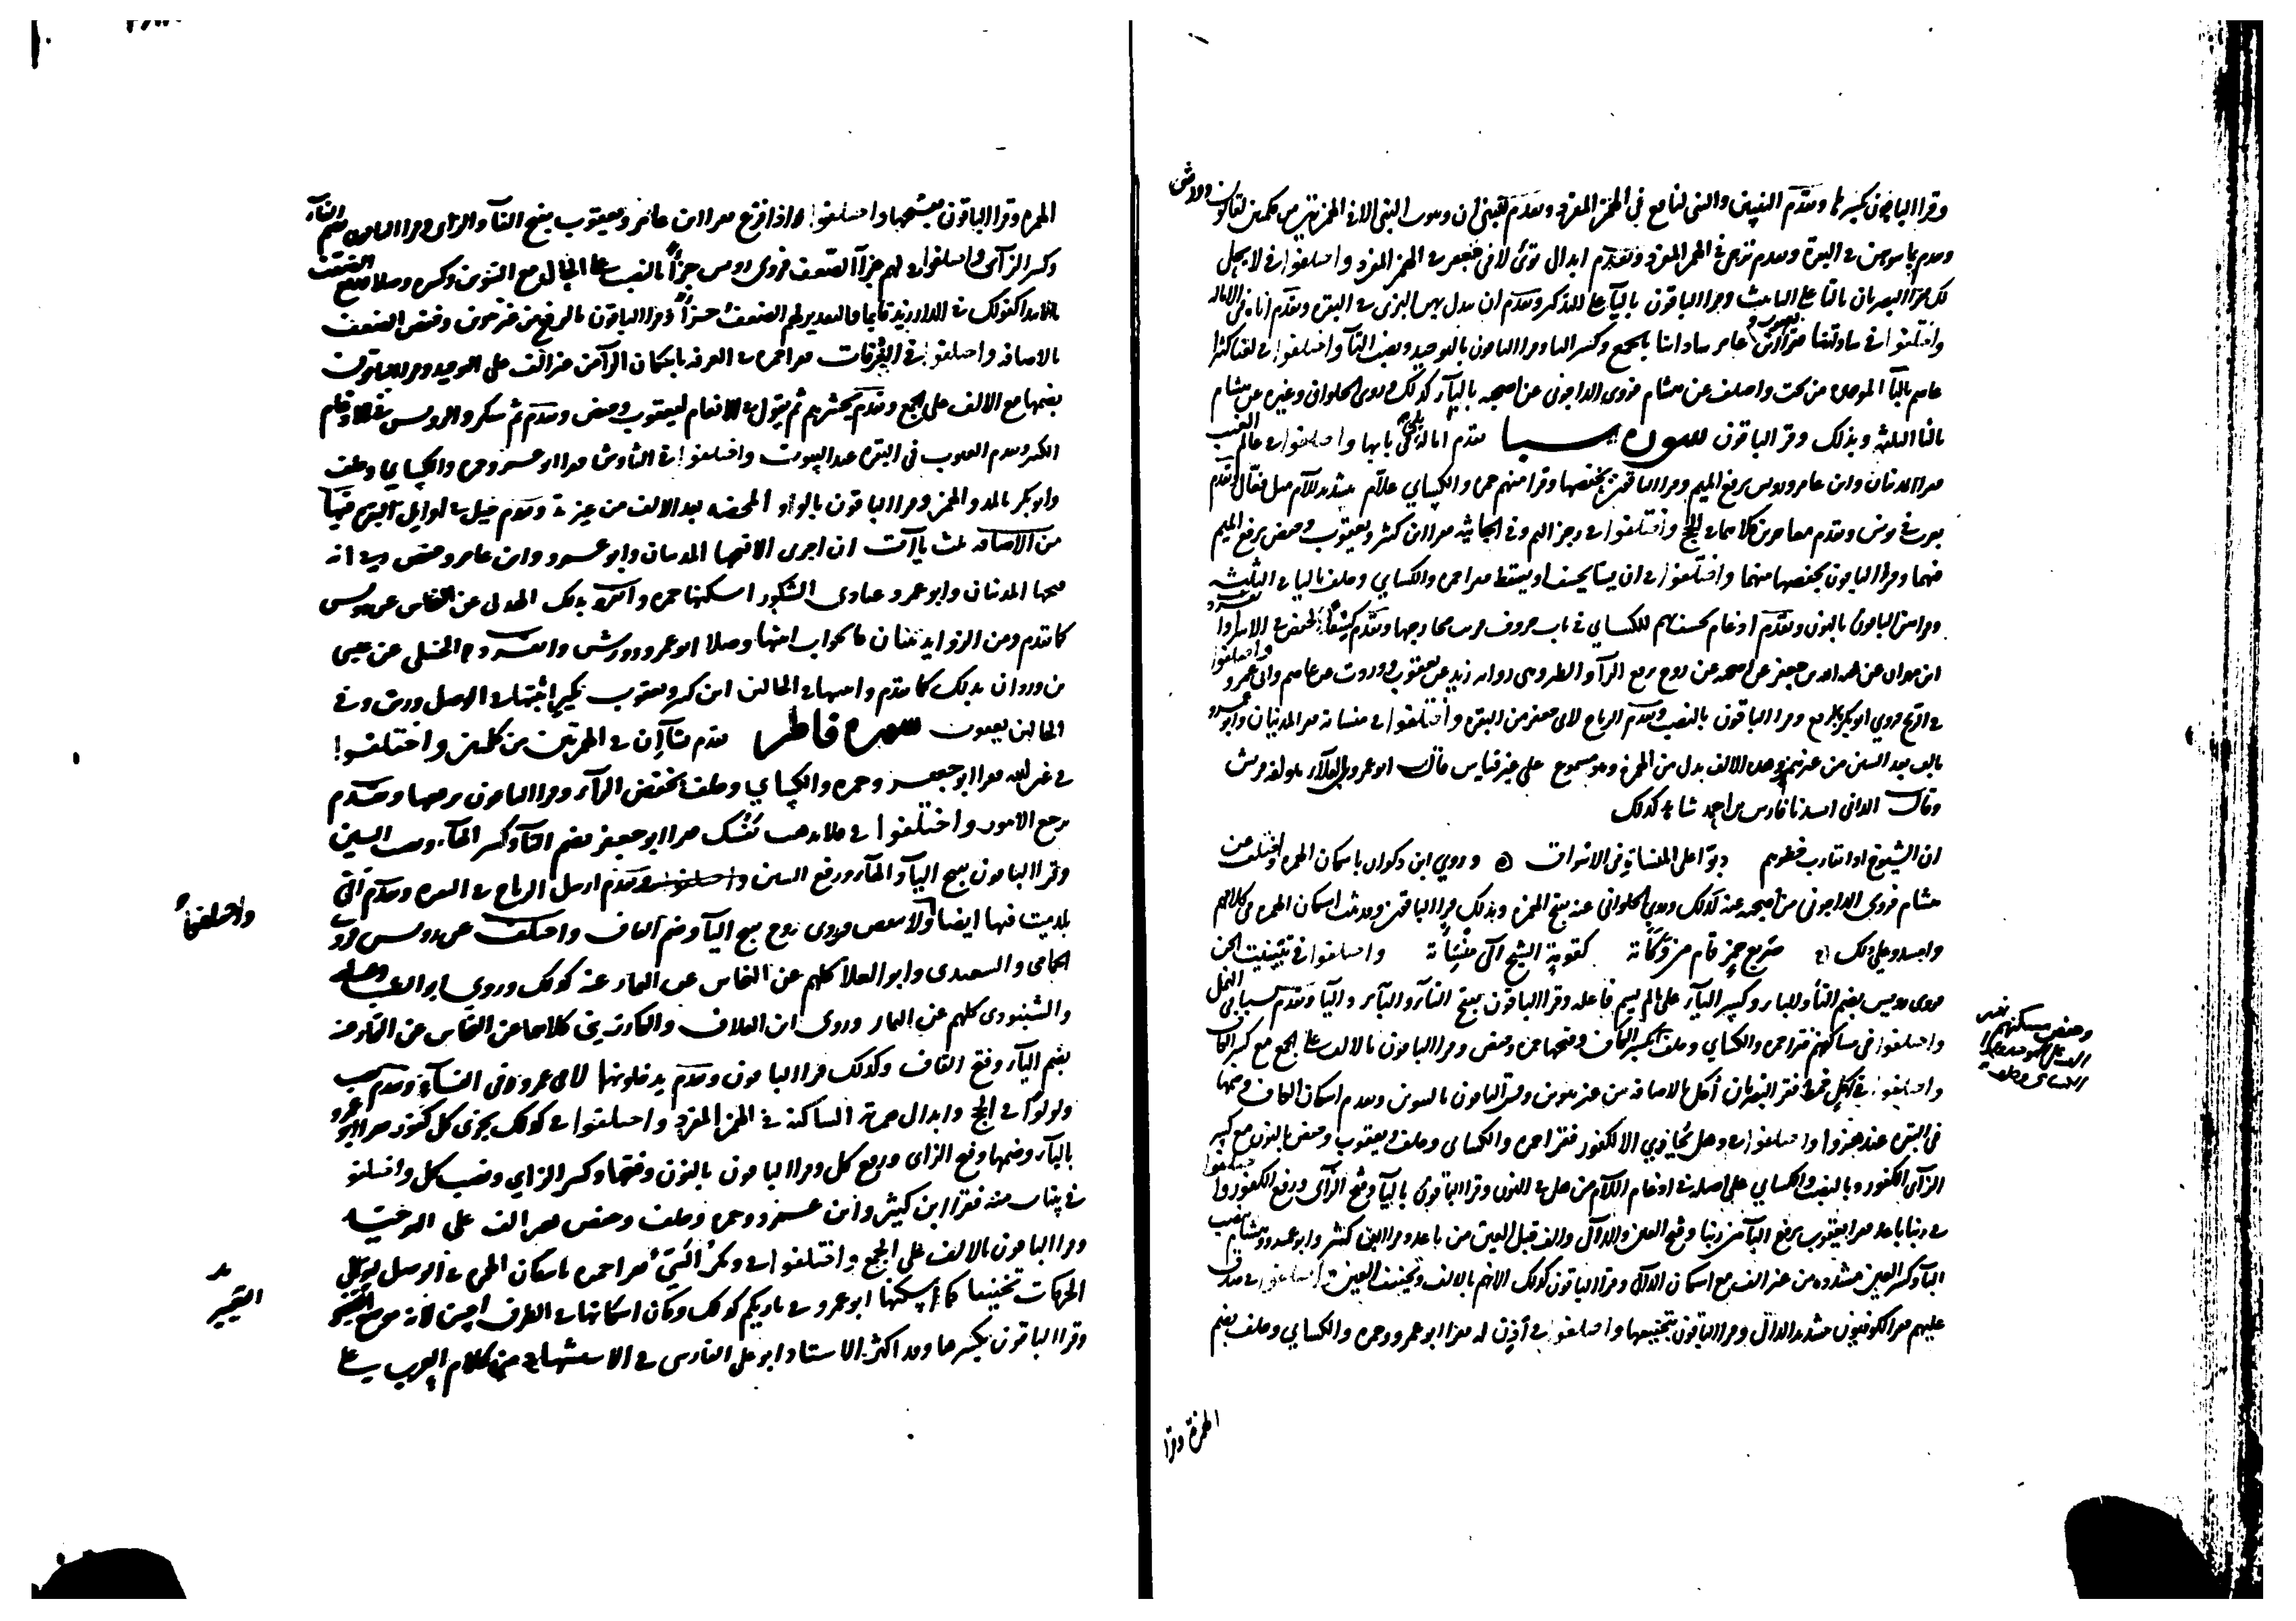 وقرا الباقون بكسرها وتقدم النبيين والنبي لنافع في الهمز المفرد وتقدم للنبي ان وبيوت النبي الا في الهمزتين من كلمتين لقالون وورش
وتقدم تماسوهن في البقرة وتقدم ترجي في الهمز المفرد وتقدم ابدال تؤي لابي جعفر في الهمز المفرد واختلفوا في لا يحل
لك فقرا البصريان بالتا على التانيث وقرا الباقون باليآ على التذكير وتقدم ان تبدل بهن للبزي في البقرة وتقدم اناه في الامالة
واختلفوا في سادتنا فقرا يعقوب وابن عامر ساداتنا بالجمع وكسر التا وقرا الباقون بالتوحيد ونصب التآ واختلفوا في لعنا كثيرا
عاصم بالبآ الموحدة من تحت واختلف عن هشام فروى الداجوني عن اصحابه بالبآ كذلك وروى الحلواني وغيره عن هشام
بالثا المثلثة وبذلك وقرا الباقون سورة سبا تقدم امالة بلى في بابها واختلفوا في عالم الغيب
فقرا المدنيان وابن عامر ورويس برفع الميم وقرا الباقون بخفضها وقرا منهم حمزة والكسائي علآم بتشديد اللآم مثل فعّال وتقدم
يعزب في يونس وتقدم معاجزين كلاهما في الحج واختلفوا في رجز اليم وفي الجاثية فقرا ابن كثير ويعقوب وحفص برفع الميم
فيهما وقرا الباقون بخفضها منهما واختلفوا في ان يشا يخسف او يسقط فقرا حمزة والكسائي وخلف باليا في الثلثة
وقراهن الباقون بالنون وتقدم ادغام يخسف بهم للكسائي في باب حروف قربت مخارجها وتقدم كسفا لحفص في الاسرا وانفرد
ابن مهران عن هبة الله بن جعفر عن اصحابه عن روح برفع الرآ والطير وهي رواية زيد عن يعقوب ووردت عن عاصم وابي عمرو واختلفوا
في الريح فروى ابو بكر بالرفع وقرا الباقون بالنصب وتقدم الرياح لابي جعفر من البقرة واختلفوا في منساته فقرا المدنيان وابو عمرو
بالف بعد السين من غير همز وهذه الالف بدل من الهمزة وهو مسموع على غير قياس قال ابو عمرو بن العلآء هو لغة قريش
وقال الداني انشدنا فارس بن احمد شاهدا لذلك
ان الشيوخ اذا تقارب خطوهم دبوا على المنساة في الاسواق وروى ابن ذكوان باسكان الهمزة واختلف عن
هشام فروى الداجوني عن اصحابه عنه كذلك وروى الحلواني عنه بفتح الهمزة وبذلك قرا الباقون وقد ثبت اسكان الهمزة في كلامهم
وانشدوا على ذلك صريع خمر قام من وكأته كقومة الشيخ الى منسأته واختلفوا في تبينت الجن
فروى رويس بضم التآ والبا وكسر اليآ على ما لم يسم فاعله وقرا الباقون بفتح التآ والبآ واليآ وتقدم لسبا في النمل
واختلفوا في مساكنهم فقرا حمزة والكسائي وخلف بكسر الكاف وفتحها حمزة وحفص وقرا الباقون بالالف على الجمع مع كسر الكاف
واختلفوا في اكل خمط فقرا البصريان أكل بالاضافة من غير تنوين وقرا الباقون بالتنوين وتقدم اسكان الكاف وضمها
في البقرة عند هزوا واختلفوا في وهل نجازي الا الكفور فقرا حمزة والكسائي وخلف ويعقوب وحفص بالنون مع كسر
الزآي الكفور وبالنصب والكسائي على اصله في ادغام اللآم من هل في النون وقرا الباقون باليآ وفتح الزآي ورفع الكفور واختلفوا
في ربنا باعد فقرا يعقوب برفع البآ من ربنا وفتح العين والدآل والف قبل العين من باعد وقرا ابن كثير وابو عمرو وهشام بنصب
البآ وكسر العين مشددة من غير الف مع اسكان الدآل وقرا الباقون كذلك الا انهم بالالف وتخفيف العين واختلفوا في صدق
عليهم فقرا الكوفيون بتشديد الدآل وقرا الباقون بتخفيفها واختلفوا في أذن له فقرا ابو عمرو وحمزة والكسائي وخلف بضم
وحفص مسكنهم بغير
الهمزة وقرا
الهمزة وقرا الباقون بفتحها واختلفوا في اذا فزع فقرا ابن عامر ويعقوب بفتح الفآ والزآي وقرا الباقون بضم الفآ
وكسر الزآي واختلفوا في لهم جزآ الضعف فروى رويس جزآً بالنصب على الحال مع التنوين وكسره وصلا ورفع الضعف
بالابتدا كقولك في الدار زيد قايما فالتقدير لهم الضعفُ جزآً وقرا الباقون بالرفع من غير تنوين وخفض الضعف
بالاضافة واختلفوا في الغرفات فقرا حمزة في الغرفة باسكان الرآ من غير الف على التوحيد وقرا الباقون
بضمها مع الالف على الجمع وتقدم يحشرهم ثم يقول في الانعام ليعقوب وحفص وتقدم ثم تتفكروا لرويس في الادغام
الكبير وتقدم الغيوب في البقرة عند البيوت واختلفوا في التناوش فقرا ابو عمرو وحمزة والكسائي وخلف
وابو بكر بالمد والهمز وقرا الباقون بالواو المحضة بعد الالف من غير مد وتقدم حيل في اوايل البقرة فيها
من الاضافة ثلث يآات ان اجري الا فتحها المدنيان وابو عمرو وابن عامر وحفص ربي انه
فتحها المدنيان وابو عمرو عبادي الشكور اسكنها حمزة وانفرد بذلك الهذلي عن النخاس عن رويس
كما تقدم ومن الزوايد ثنتان كالجواب اثبتها وصلا ابو عمرو وورش وانفرد الحنبلي عن عيسى
بن وردان بذلك كما تقدم واثبتها في الحالين ابن كثير ويعقوب نكير اثبتها في الوصل ورش وفي
الحالين يعقوب سورة فاطر تقدم يشآ ان في الهمزتين من كلمتين واختلفوا
في غير الله فقرا ابو جعفر وحمزة والكسائي وخلف بخفض الرآ وقرا الباقون برفعها وتقدم
ترجع الامور واختلفوا في فلا تذهب نفسك فقرا ابو جعفر بضم التآ وكسر الهآ ونصب السين
وقرا الباقون بفتح اليآ والهآ ورفع السين وتقدم ارسل الرياح في البقرة وتقدم الى
بلد ميت فيها ايضا ولا ينقص فروى روح بفتح اليآ وضم القاف واختلف عن رويس فروى
الحمامي والسعيدي وابو العلا كلهم عن النخاس عن التمار عنه كذلك وروى ابو الطيب
والشنبوذي كلهم عن التمار وروى ابن العلاف والكارزيني كلاهما عن النخاس عن التمار عنه
بضم اليآ وفتح القاف وكذلك قرا الباقون وتقدم يدخلونها لابي عمرو في النسآ وتقدم
ولؤلؤا في الحج وابدال همزته الساكنة في الهمز المفرد واختلفوا في كذلك يجزى كل كفور فقرا ابو عمرو
باليآ وضمها وفتح الزاي ورفع كل وقرا الباقون بالنون وفتحها وكسر الزاي ونصب كل واختلفوا
في بينات منه فقرا ابن كثير وابو عمرو وحمزة وخلف وحفص بغير الف على التوحيد
وقرا الباقون بالالف على الجمع واختلفوا في ومكر السيئ فقرا حمزة باسكان الهمزة في الوصل لتوالي
الحركات تخفيفا كما اسكنها ابو عمرو في بارئكم كذلك وكان اسكانها في الطرف احسن لانه موضع التغيير
وقرا الباقون بكسرها وقد اكثر الاستاد ابو علي الفارسي في الاستشهاد من كلام العرب على
واختلفوا
التغيير